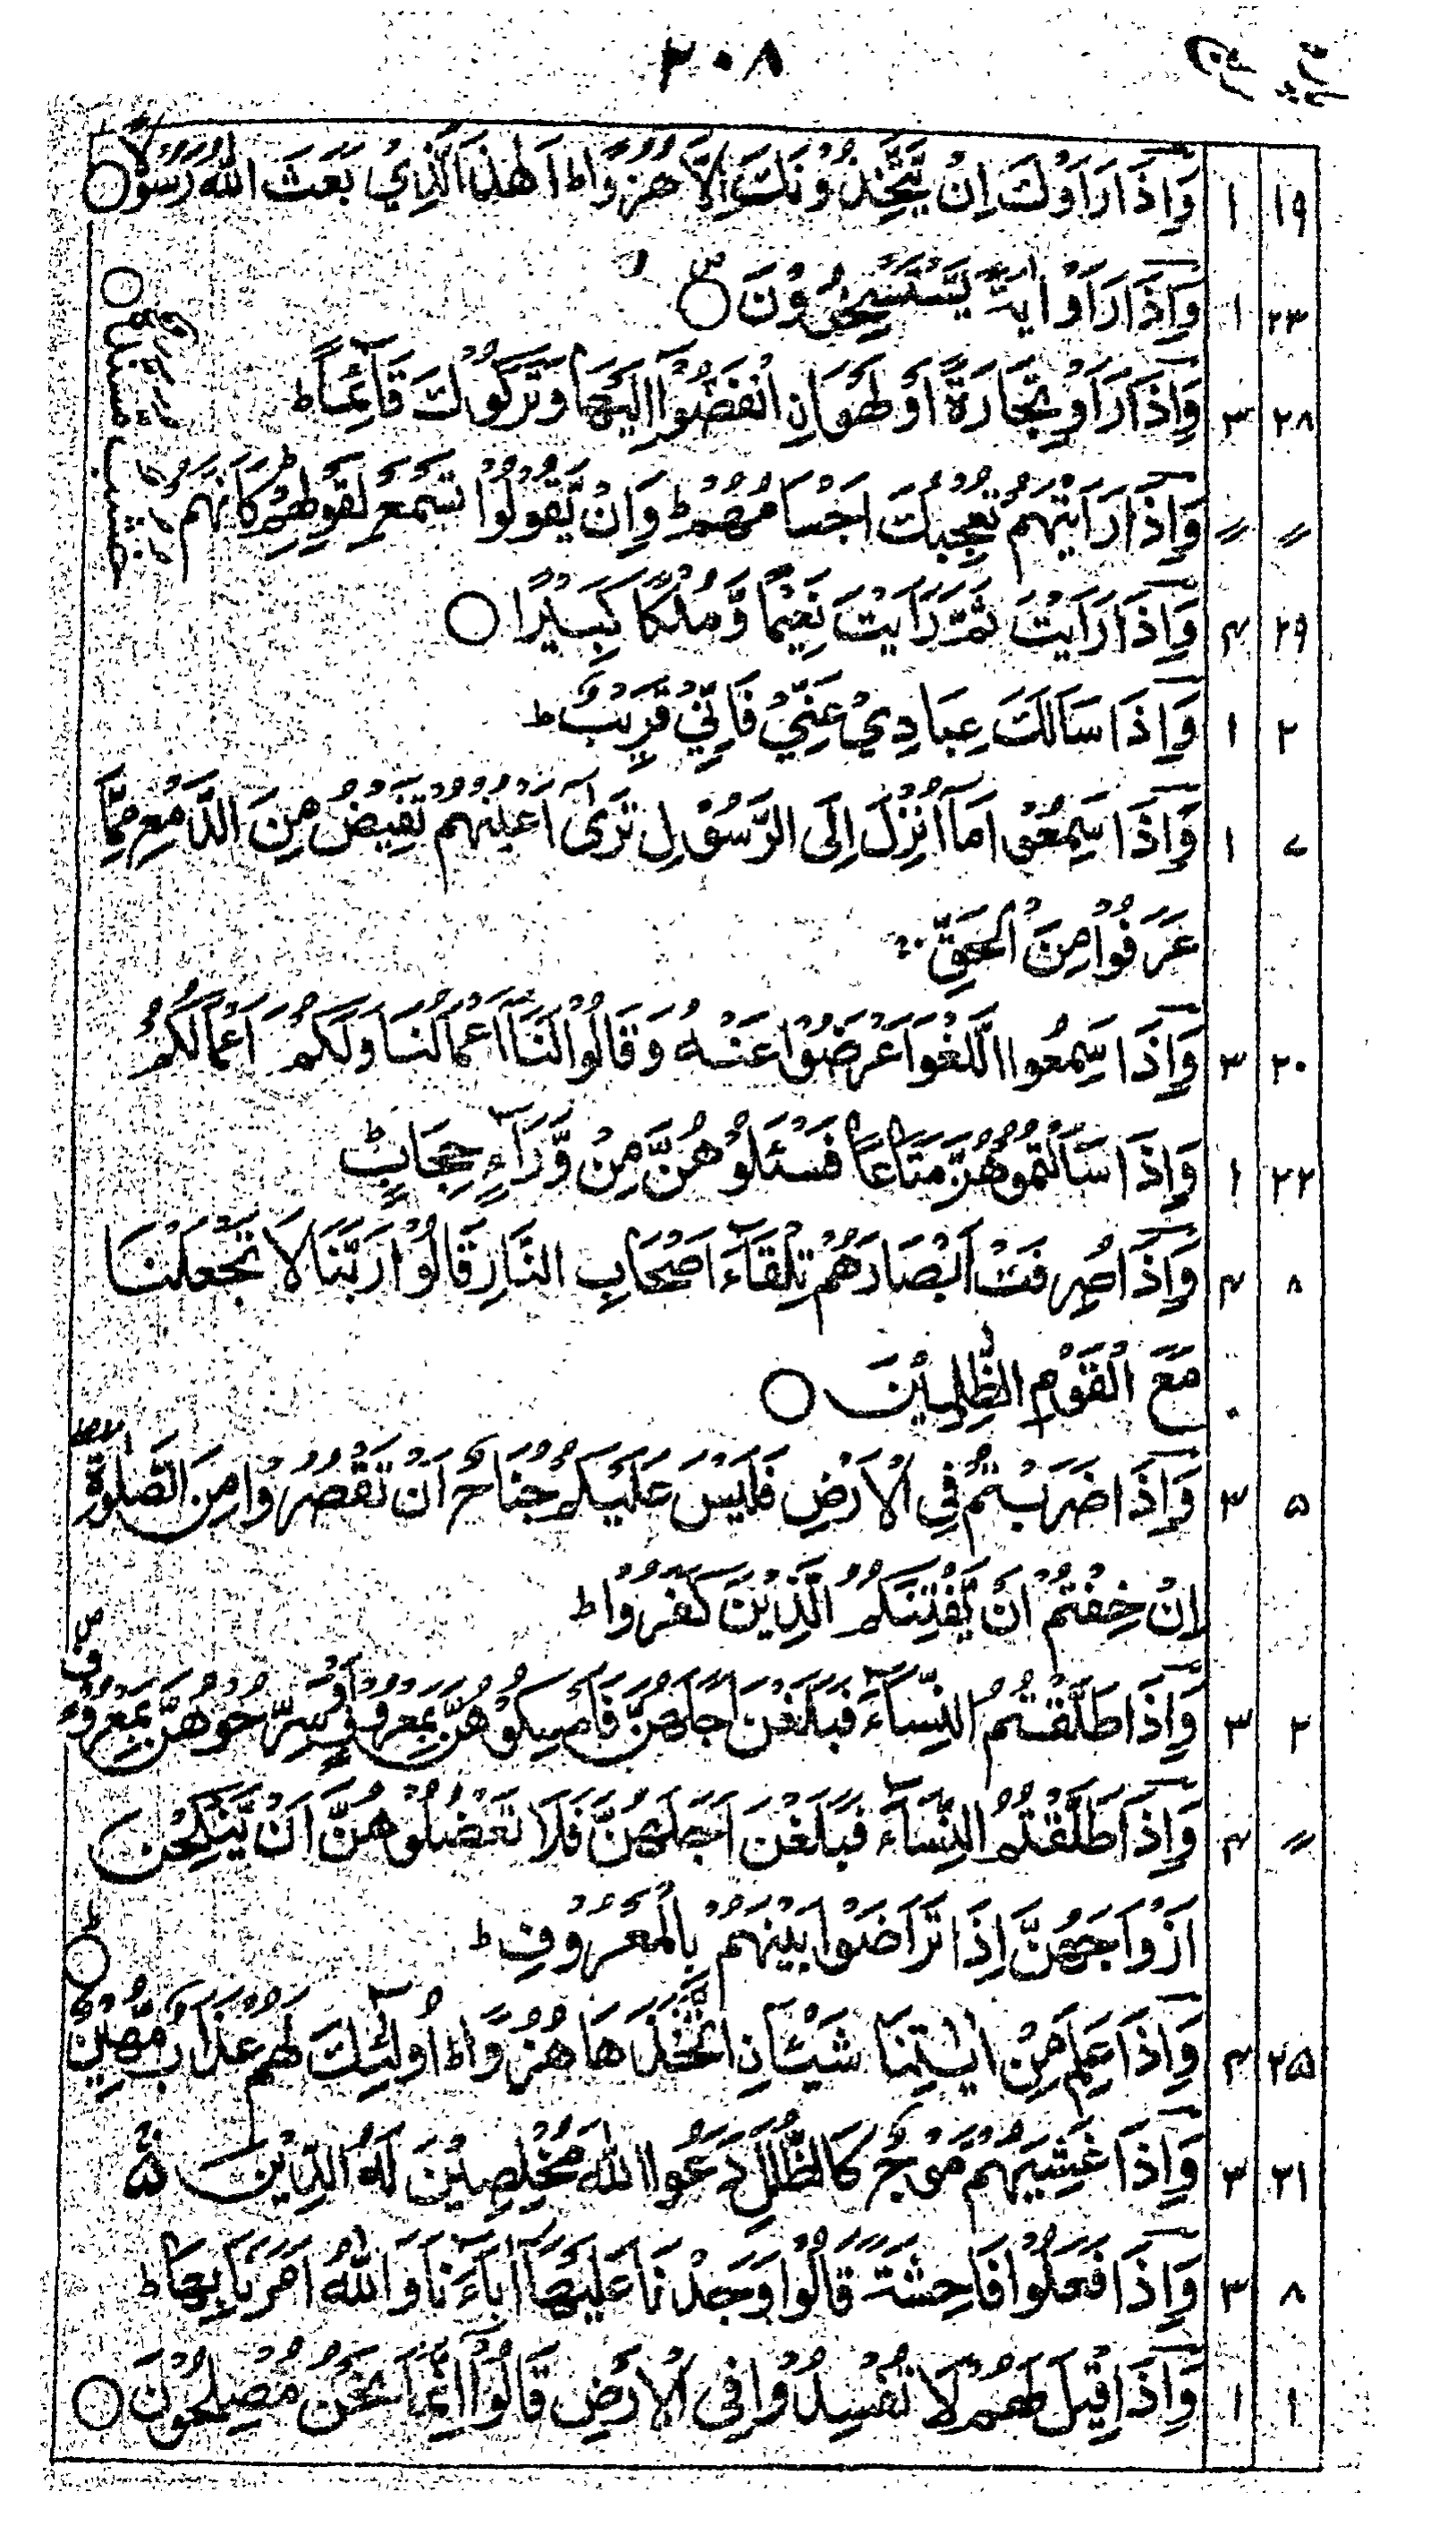 ۳۰۸
پارہ
۱۹ ۱ وَاِذَا رَاَوْكَ اِنْ يَّتَّخِذُوْنَكَ اِلَّا هُزُوًا ط اَهٰذَا الَّذِيْ بَعَثَ اللّٰهُ رَسُوْلًا ○
۲۳ ۱ وَاِذَا رَاَوْا اٰيَةً يَّسْتَسْخِرُوْنَ ○ ص
۲۸ ۳ وَاِذَا رَاَوْ تِجَارَةً اَوْ لَهْوَانِ انْفَضُّوْا اِلَيْهَا وَتَرَكُوْكَ قَآئِمًا ط
〃 〃 وَاِذَا رَاَيْتَهُمْ تُعْجِبُكَ اَجْسَامُهُمْ ط وَاِنْ يَّقُوْلُوْا تَسْمَعْ لِقَوْلِهِمْ ط كَاَنَّهُمْ خُشُبٌ مُّسَنَّدَةٌ ○
۲۹ ۴ وَاِذَا رَاَيْتَ ثَمَّ رَاَيْتَ نَعِيْمًا وَّمُلْكًا كَبِيْرًا ○
۲ ۱ وَاِذَا سَاَلَكَ عِبَادِيْ عَنِّيْ فَاِنِّيْ قَرِيْبٌ ط
۷ ۱ وَاِذَا سَمِعُوْا مَآ اُنْزِلَ اِلَى الرَّسُوْلِ تَرٰى اَعْيُنَهُمْ تَفِيْضُ مِنَ الدَّمْعِ مِمَّا
عَرَفُوْا مِنَ الْحَقِّ
۲۰ ۳ وَاِذَا سَمِعُوا اللَّغْوَ اَعْرَضُوْا عَنْهُ وَقَالُوْا لَنَا اَعْمَالُنَا وَلَكُمْ اَعْمَالُكُمْ
۲۲ ۱ وَاِذَا سَاَلْتُمُوْهُنَّ مَتَاعًا فَسْئَلُوْهُنَّ مِنْ وَّرَآءِ حِجَابٍ ط
۸ ۴ وَاِذَا صُرِفَتْ اَبْصَارُهُمْ تِلْقَآءَ اَصْحَابِ النَّارِ قَالُوْا رَبَّنَا لَا تَجْعَلْنَا
مَعَ الْقَوْمِ الظّٰلِمِيْنَ ○
۵ ۳ وَاِذَا ضَرَبْتُمْ فِي الْاَرْضِ فَلَيْسَ عَلَيْكُمْ جُنَاحٌ اَنْ تَقْصُرُوْا مِنَ الصَّلٰوةِ
اِنْ خِفْتُمْ اَنْ يَّفْتِنَكُمُ الَّذِيْنَ كَفَرُوْا ط
۲ ۳ وَاِذَا طَلَّقْتُمُ النِّسَآءَ فَبَلَغْنَ اَجَلَهُنَّ فَاَمْسِكُوْهُنَّ بِمَعْرُوْفٍ اَوْ سَرِّحُوْهُنَّ بِمَعْرُوْفٍ ص
〃 ۴ وَاِذَا طَلَّقْتُمُ النِّسَآءَ فَبَلَغْنَ اَجَلَهُنَّ فَلَا تَعْضُلُوْهُنَّ اَنْ يَّنْكِحْنَ
اَزْوَاجَهُنَّ اِذَا تَرَاضَوْا بَيْنَهُمْ بِالْمَعْرُوْفِ ط
۲۵ ۴ وَاِذَا عَلِمَ مِنْ اٰيٰتِنَا شَيْئَانِ اتَّخَذَهَا هُزُوًا ط اُولٰٓئِكَ لَهُمْ عَذَابٌ مُّهِيْنٌ ○ ط
۲۱ ۳ وَاِذَا غَشِيَهُمْ مَّوْجٌ كَالظُّلَلِ دَعَوُا اللّٰهَ مُخْلِصِيْنَ لَهُ الدِّيْنَ ۵
۸ ۳ وَاِذَا فَعَلُوْا فَاحِشَةً قَالُوْا وَجَدْنَا عَلَيْهَا اٰبَآءَنَا وَاللّٰهُ اَمَرَنَا بِهَا ط
۱ ۱ وَاِذَا قِيْلَ لَهُمْ لَا تُفْسِدُوْا فِى الْاَرْضِ قَالُوْا اِنَّمَا نَحْنُ مُصْلِحُوْنَ ○